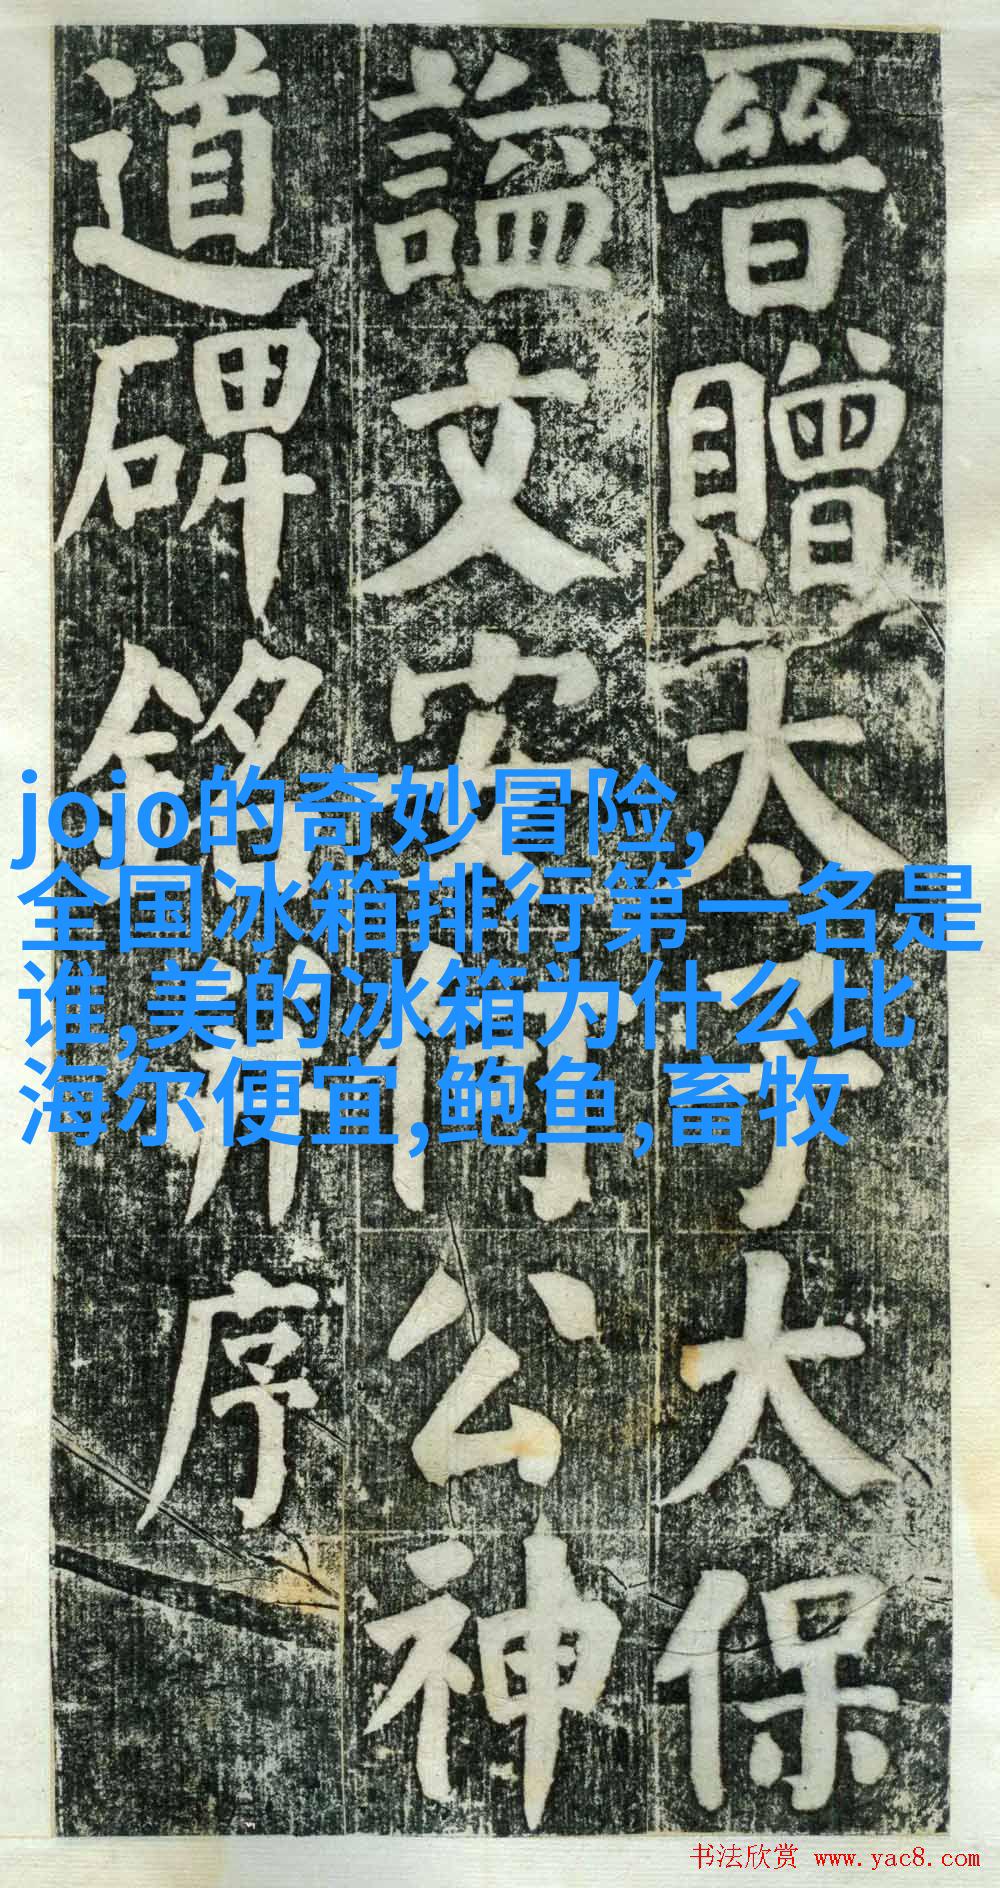 晉贈太子太保
謚文安何公神
道碑銘并序
jojo的奇妙冒险,
全国冰箱排行第一名是
谁,美的冰箱为什么比
海尔便宜,鲍鱼,畜牧
书法欣赏 www.yac8.com